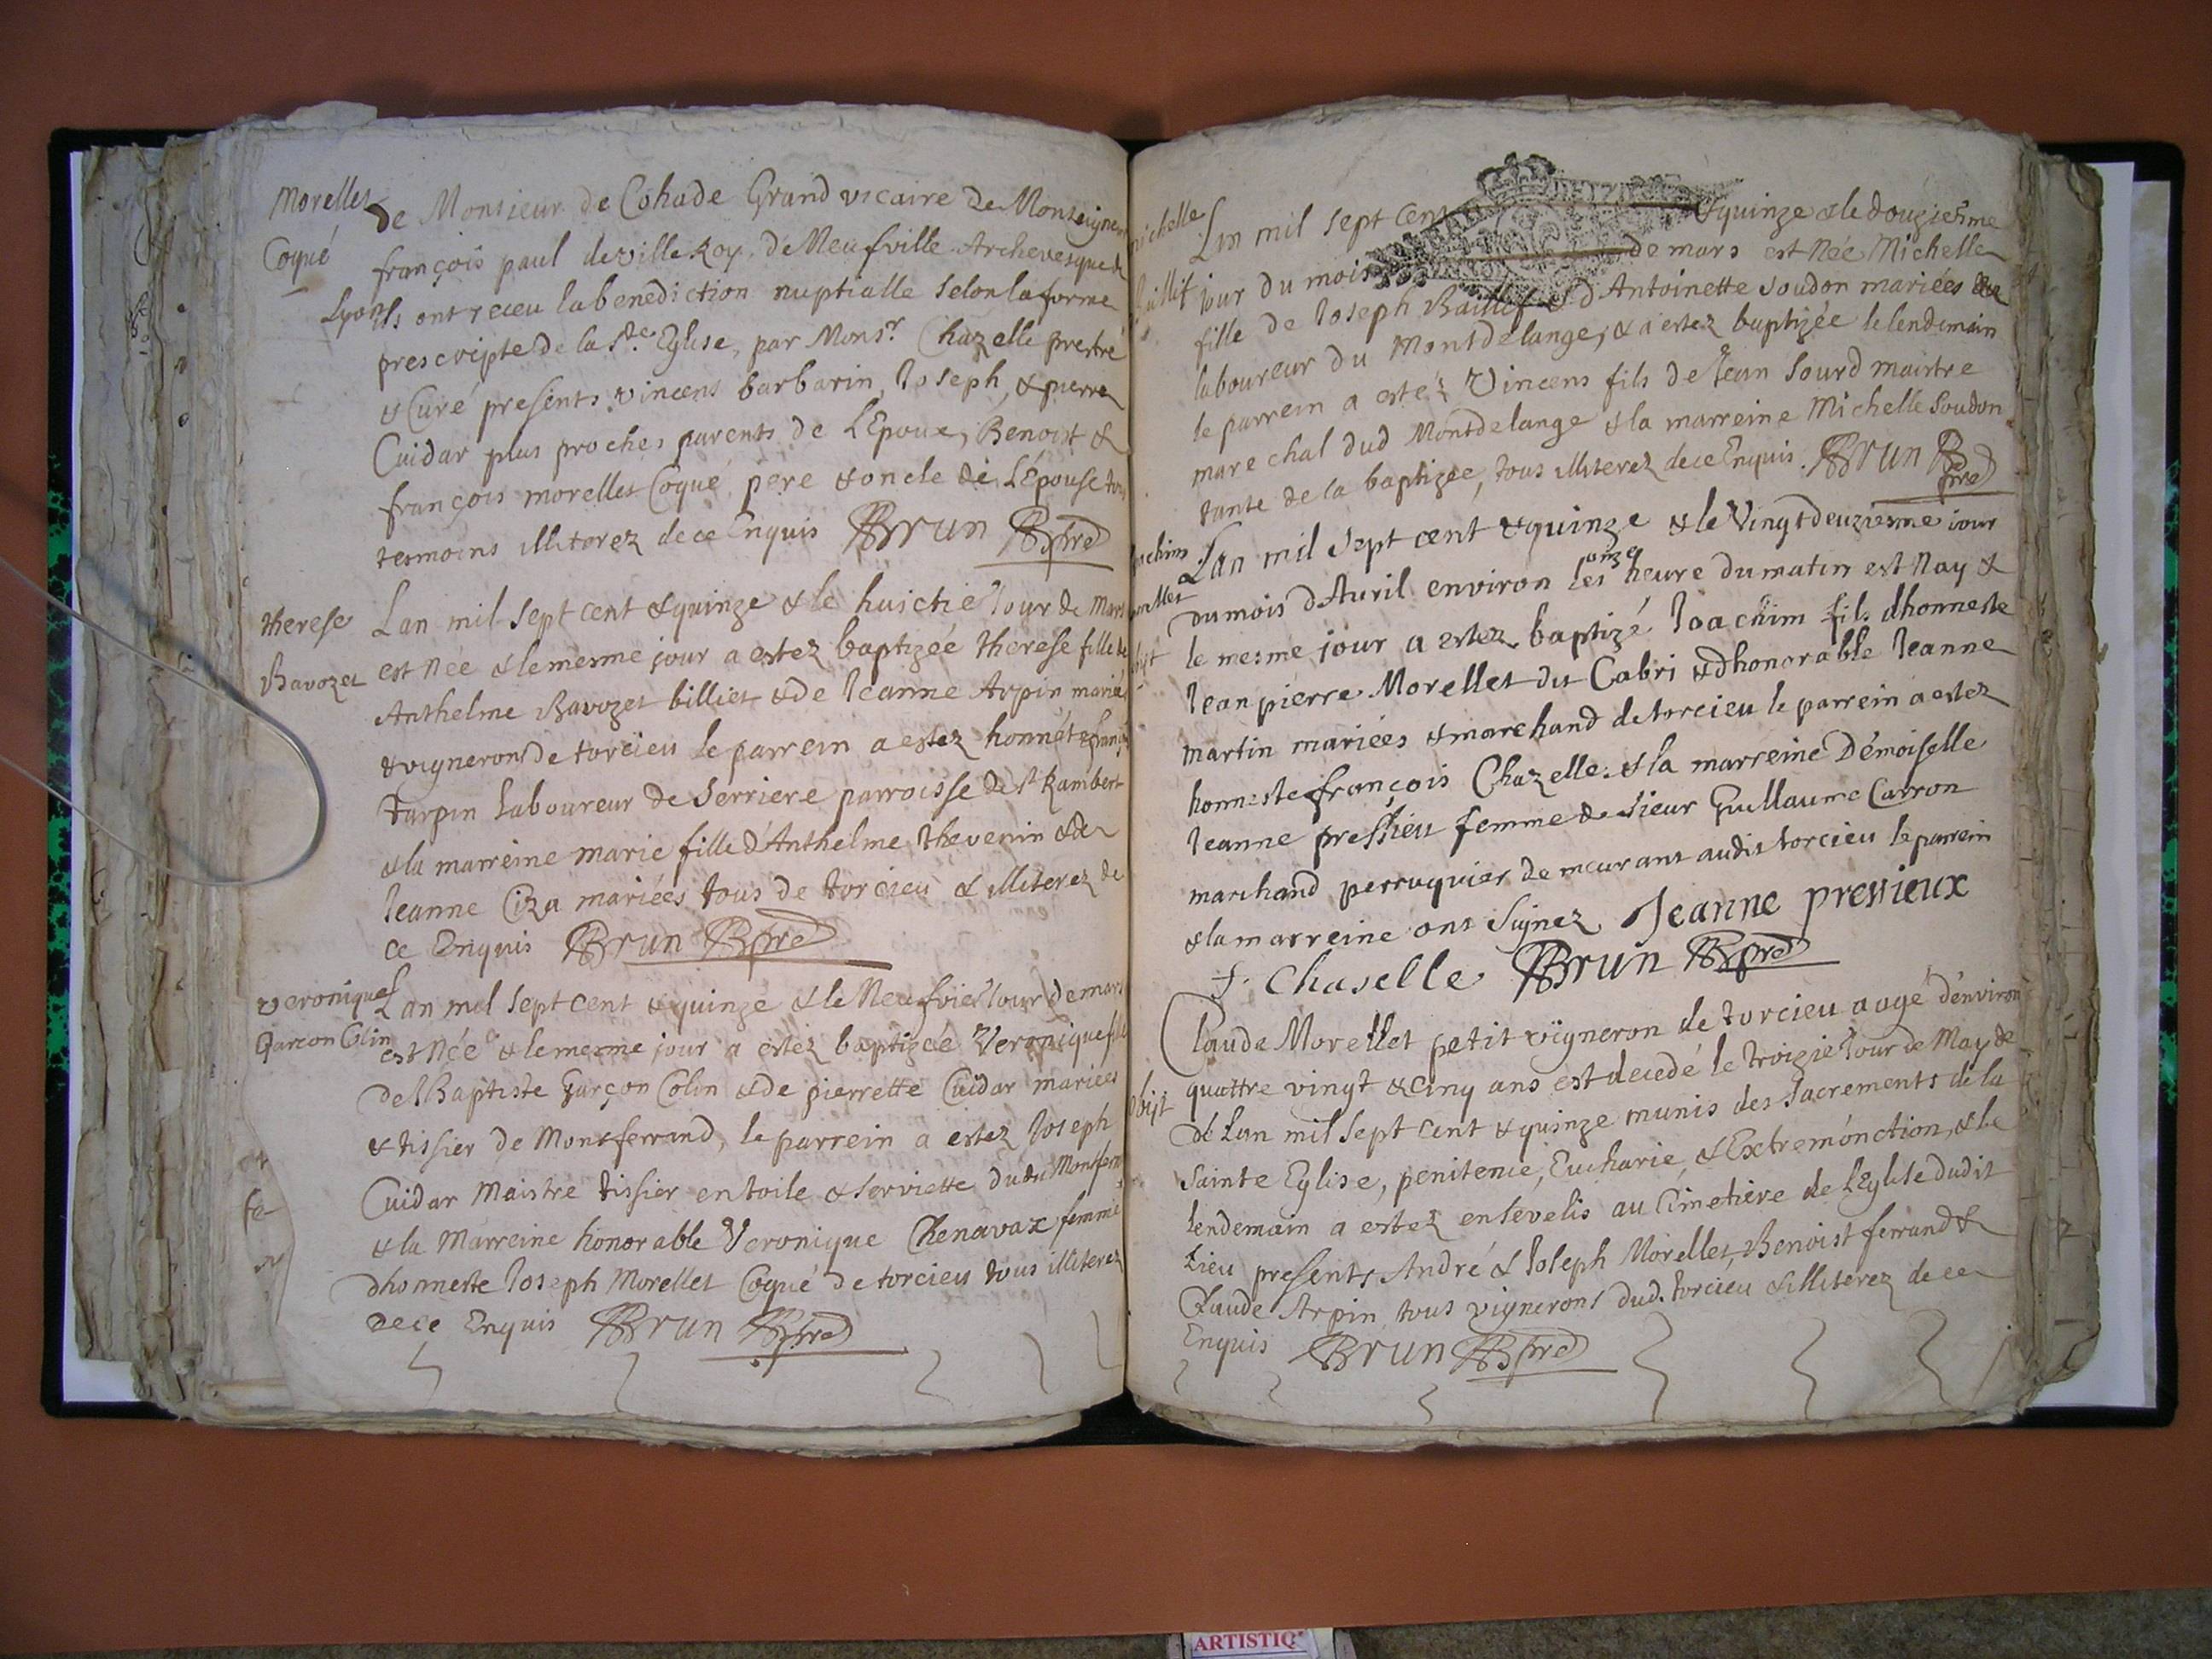 Morellet
Coqué
de Monsieur de Cohade Grand vicaire de Monseigneur
françois paul de ville Roy, de Neufville Archevesque de
Lyon Ils ont receu la benediction nuptialle selon la forme
prescripte de la Ste. Eglise, par Monsr. Chazelle prestre
& Curé presents vincens barbarin, Joseph, & pierre
Cuidar plus proches parents de L'Epoux, Benoist &
françois morellet Coqué pere & oncle de L'Épouse tous
tesmoins illiterez de ce Enquis BBrun BBpre
therese
Bavozet
Lan mil sept cent & quinze & le huictie Jour de Mars
est Née & le mesme jour a estez baptizée therese fille de
Anthelme Bavozet billiet & de Jeanne Arpin mariés
& vignerons de torcieu le parrein a estez honnéte françois
tarpin Laboureur de Serriere parroisse de st Rambert
& la marreine marie fille d'Anthelme thevenin & de
Jeanne Ciza mariées tous de torcieu & illiterez de
ce Enquis BBrun BBpre
veronique
Garcon Colin
Lan mil sept cent & quinze & le Neufvie Jour de mars
est Née & le mesme jour a estez baptizée Veronique fille
de Baptiste Garçon Colin & de pierrette Cuidar mariées
& tissier de Montferrand, le parrein a estez Joseph
Cuidar Maistre tissier en toile & serviette dudit Montferrand
& la Marreine honorable Veronique Chenavax femme
dhonneste Joseph Morellet Coqué de torcieu tous illiterez
de ce Enquis BBrun BBpre
michelle
Baillif
Lan mil sept cent & quinze & le douzieme
jour du mois de mars est Née Michelle
fille de Joseph Baillif & d'Antoinette soudon mariées &
laboureur du Montdelange, & a estez baptizée le lendemain
le parrein a estéz Vincens fils de Jean Sourd maistre
marechal dud Montdelange & la marreine Michelle Soudon
tante de la baptizee, tous illiterez de ce Enquis. BBrun BBpre
Joachim
morellet
obijt
Lan mil sept cent & quinze & le Vingtdeuziesme jour
du mois d'Avril environ les onze heure du matin est Nay &
le mesme jour a estez baptizé Joachim fils dhonneste
Jean pierre Morellet dit Cabri & dhonorable Jeanne
martin mariées & marchand de torcieu le parrein a estez
honneste françois Chazelle & la marreine Démoiselle
Jeanne pressieu femme de sieur Guillaume Carron
marchand perruquier demeurant audit torcieu le parrein
& la marreine ont signez Jeanne pressieux
f. Chaselle BBrun BBpre
obijt
Claude Morellet petit vigneron de torcieu aagé d'environ
quattre vingt & cinq ans est decedé le troizie Jour de May de
de Lan mil sept cent & quinze munis des sacrements de la
Sainte Eglise, penitence, Eucharie, & Extremónction, & le
lendemain a estez ensévelis au Cimetiere de L'Eglise dudit
Lieu presents André & Joseph Morellet, Benoist ferrand &
Claude Arpin tous vignerons dud. torcieu & illiterez de ce
Enquis BBrun BBpre
ARTISTIQ